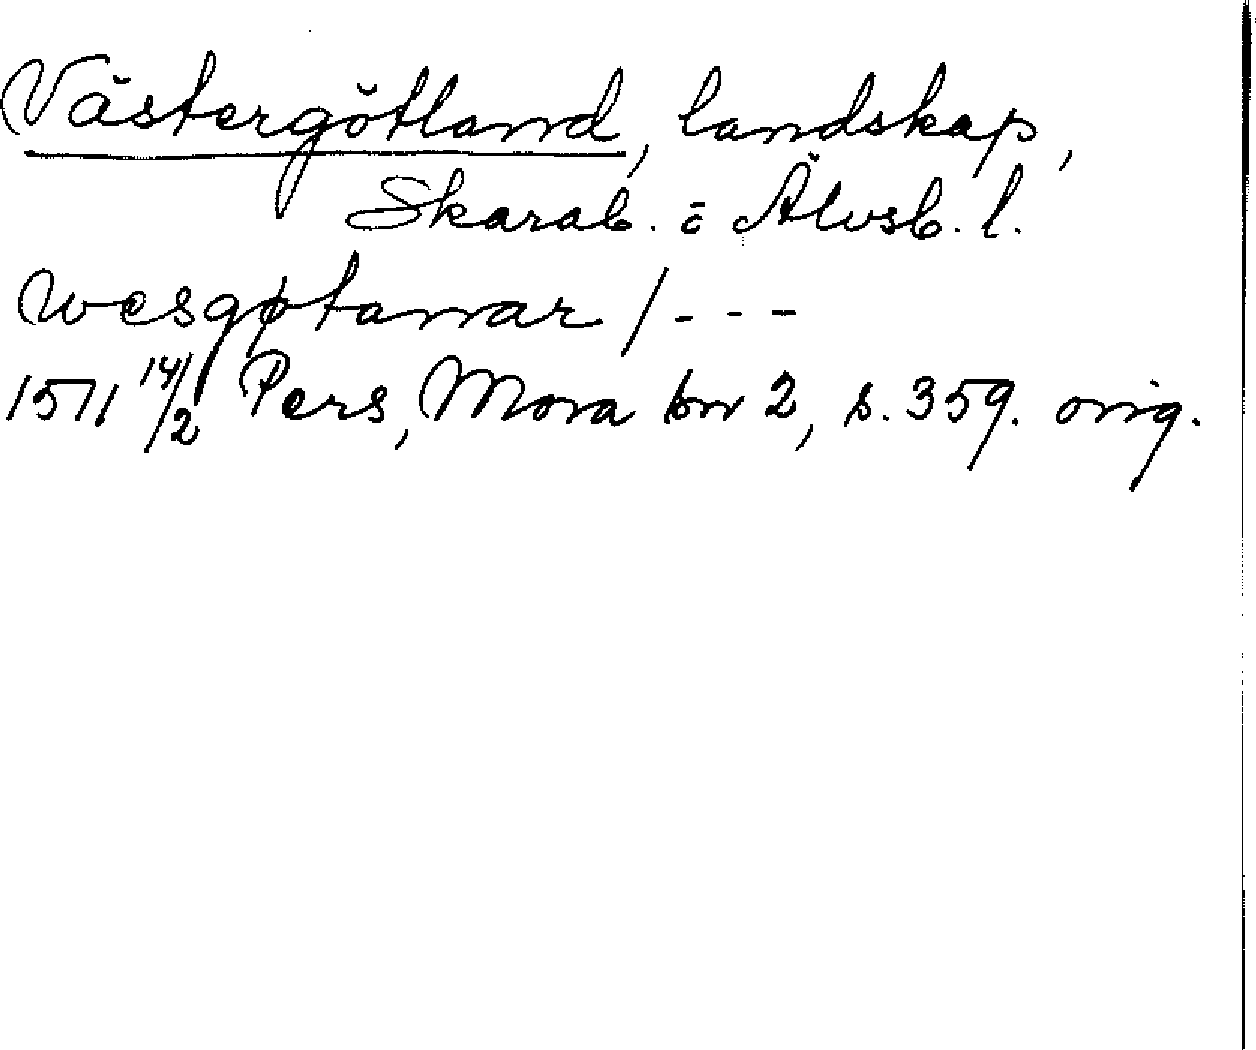 Västergötland, landskap,
Skarab. o Älvsb. l.
wesgøtanar / - - -
1511 14/2 Pers, Mora br 2, s. 359. orig.